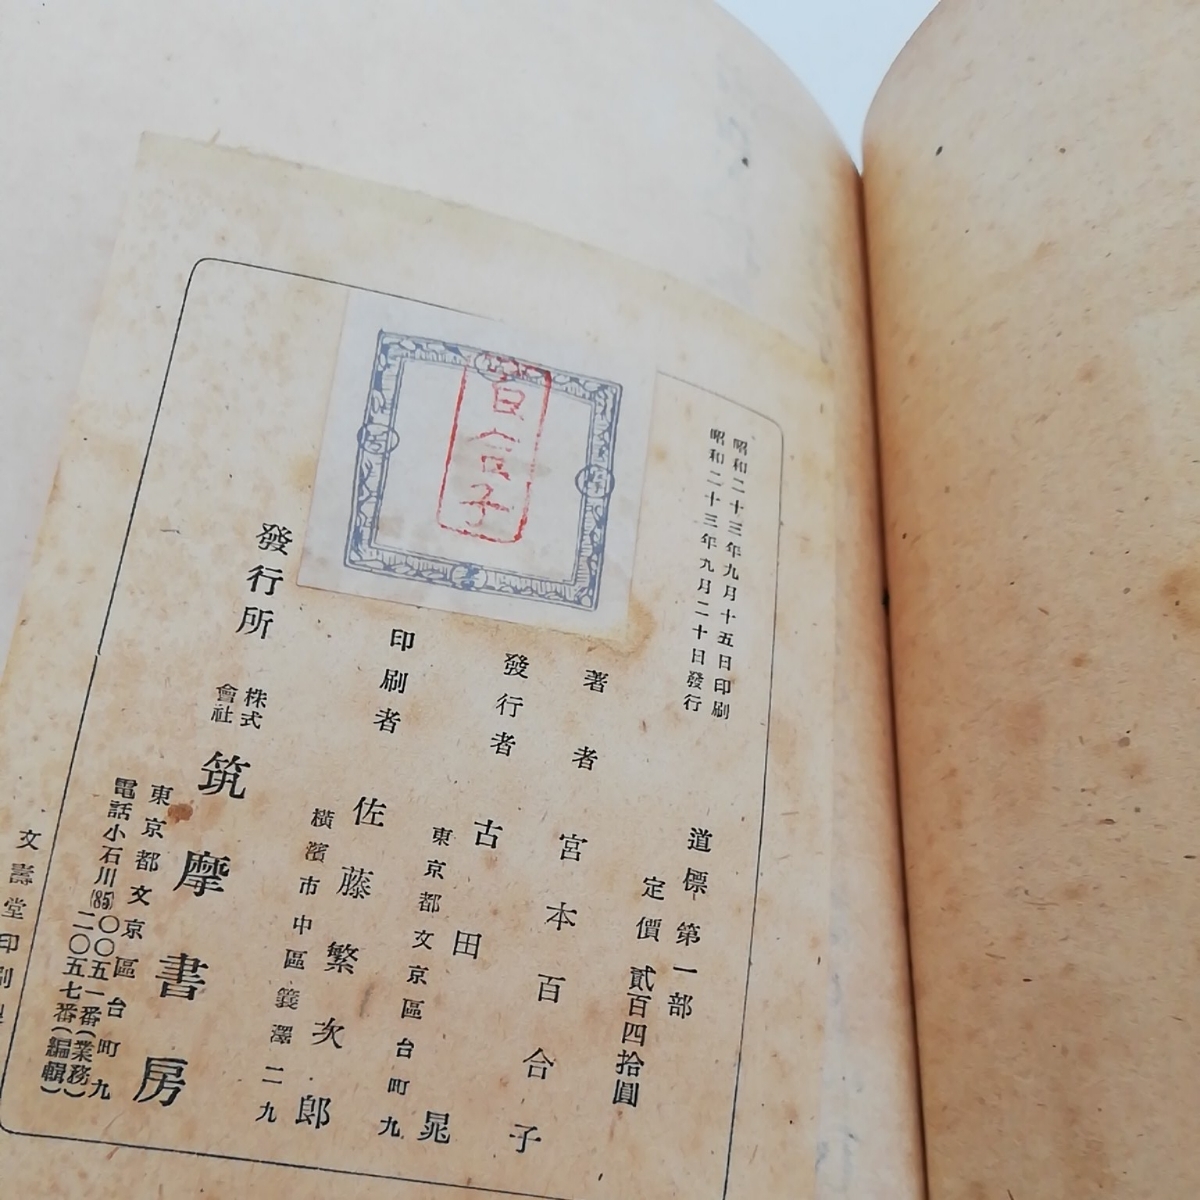 昭和二十三年九月十五日印刷
昭和二十三年九月二十日發行
道標 第一部
定價 貳百四拾圓
著者 宮本百合子
發行者 古田晁
東京都文京區台町九
印刷者 佐藤繁次郎
橫濱市中區簑澤二九
發行所 株式會社 筑摩書房
東京都文京區台町九
電話小石川(85)〇〇五一番(業務)
二〇五七番(編輯)
文壽堂印刷
百合子